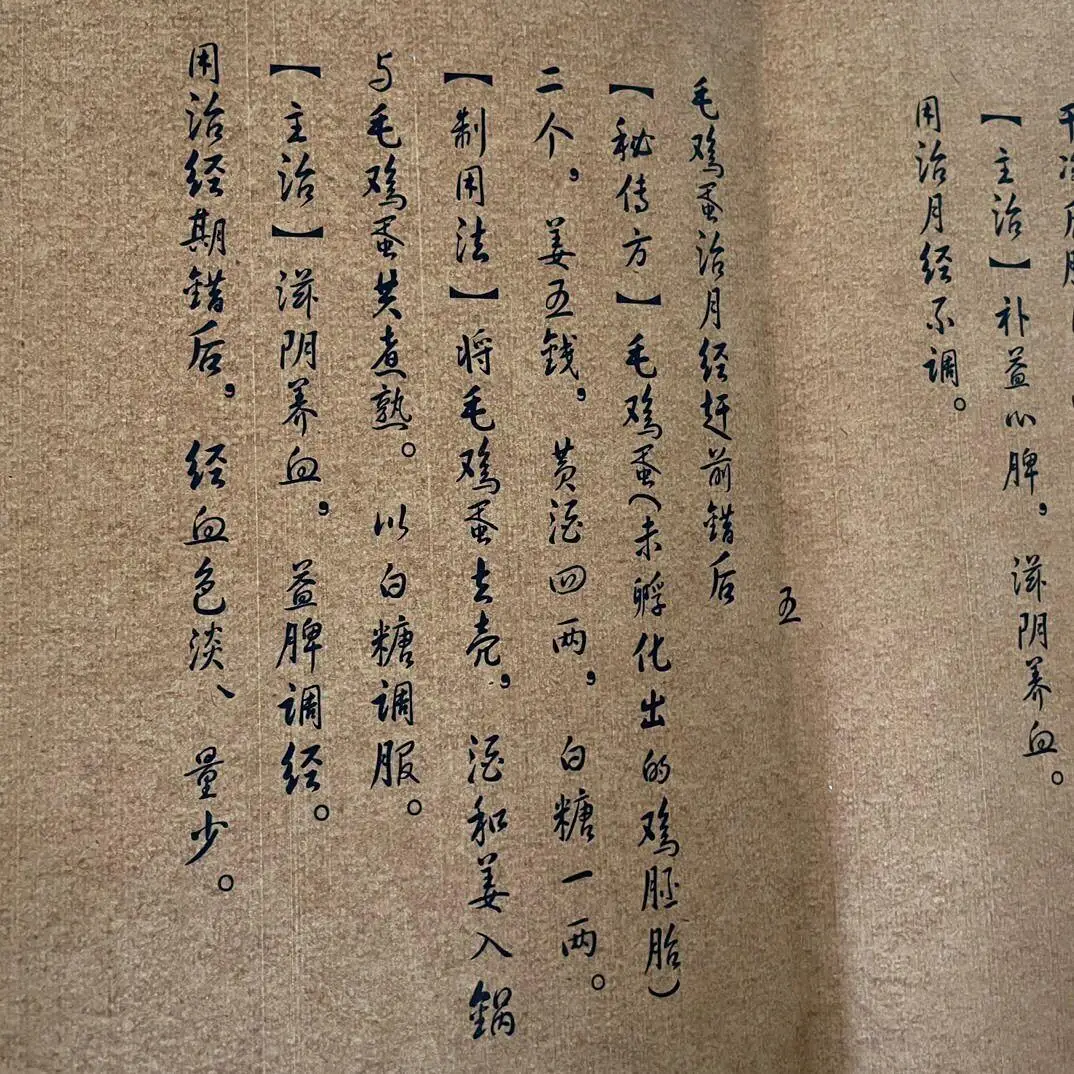 【主治】补益心脾，滋阴养血。
用治月经不调。
五
毛鸡蛋治月经赶前错后
【秘传方】毛鸡蛋(未孵化出的鸡胚胎)
二个，姜五钱，黄酒四两，白糖一两。
【制用法】将毛鸡蛋去壳，酒和姜入锅
与毛鸡蛋共煮熟。以白糖调服。
【主治】滋阴养血，益脾调经。
用治经期错后，经血色淡、量少。